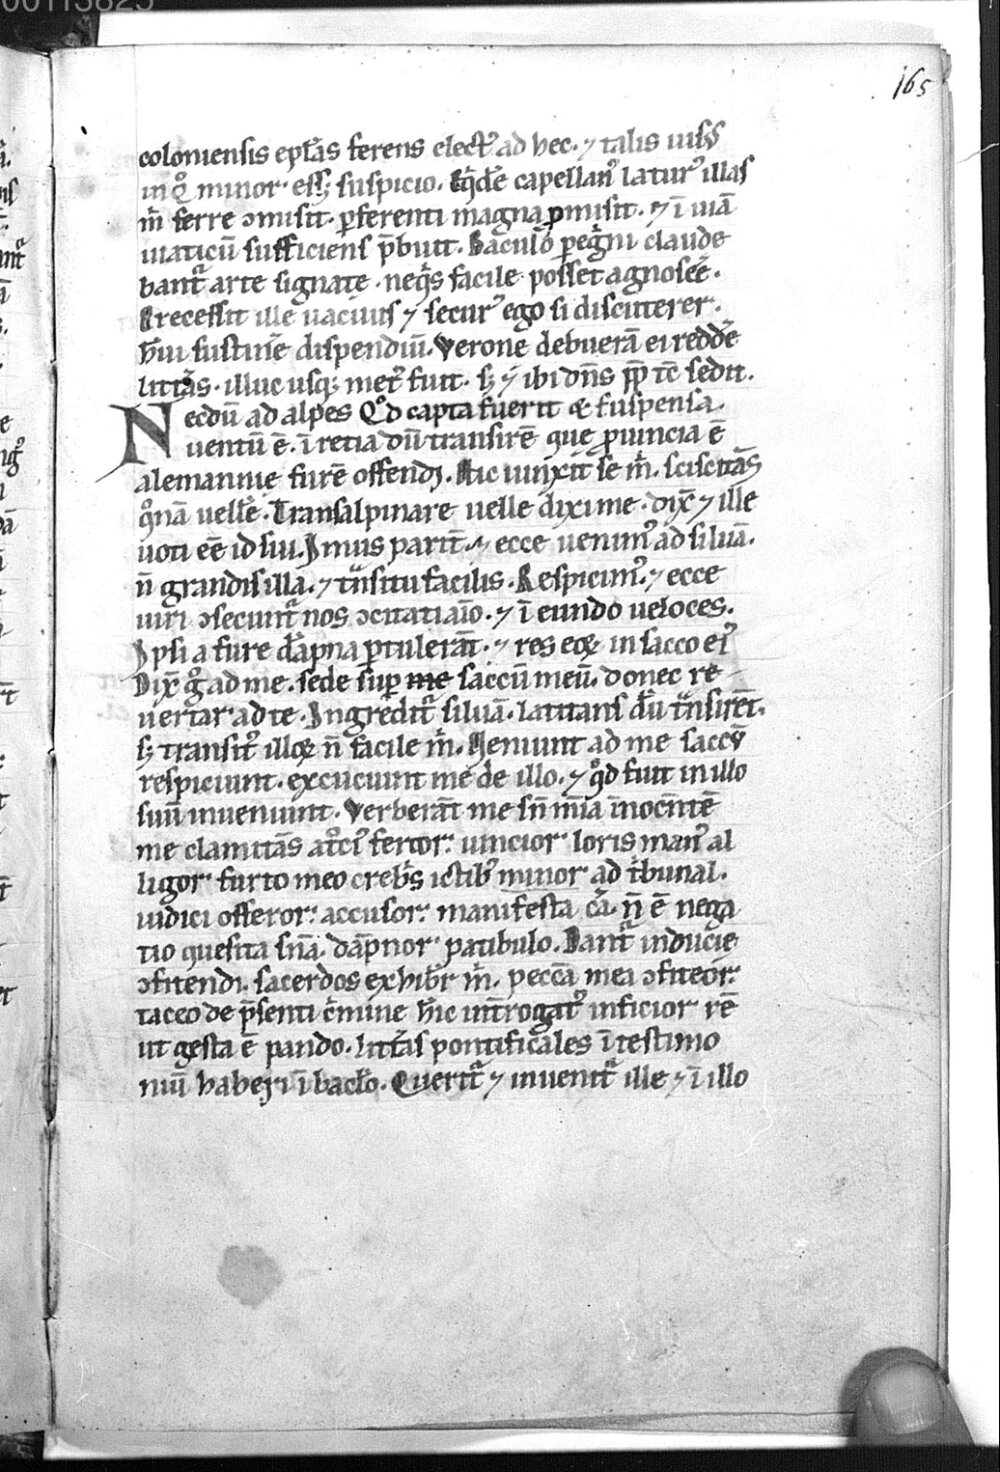 165
coloniensis epl̄as ferens elect᷒ ad hec. ⁊ talis iuss᷒
in qͦ minor ess; suspicio. capellan᷒ latur᷒ illas
m̄ ferre ꝯmisit. ꝑferenti magna ꝓmisit. ⁊ ī uiā
uiaticū sufficiens p̄buit. Baculo peg̃ni claude
bant᷑ arte signate. neqͥs facile posset agnoscē.
Precessit ille uacuus ⁊ secur᷒ ego si discuterer.
hui sustinē dispendiū. Verone debuerā ei reddē
litt̄as. illuc usq; met᷒ fuit. s; ⁊ ibi dn̄s pp̄ tc̄ sedit.
Necdū ad alpes qͦd capta fuerit & suspensa.
uentū ē. ī retia dū transirē que ꝓuincia ē
alemannie furē offendi. Hic iunxit se m̄. sciscitās
qͦnā uelle᷑. Transalpinare uelle dixi me. dix̄ ⁊ ille
uoti eē id sui. Imus parit̄. ⁊ ecce uenim᷒ ad siluā.
n̄ grandis illa. ⁊ tͣnsitu facilis. Respicim᷒. ⁊ ecce
uiri ꝯsecunt᷑ nos ꝯcitati aīo. ⁊ ī eundo ueloces.
Ipsi a fure dāpna ꝑtulerāt. ⁊ res eoꝝ in sacco ei᷒
Dix̄ gͦ ad me. sede sup me saccū meū. donec re
uertar ad te. Ingredit᷑ siluā. latitans dū tͣnsirēt.
s; transit᷒ illoꝝ n̄ facile m̄. Veniunt ad me saccū
respiciunt. excuciunt me de illo. ⁊ qͦd fuit in illo
suū inueniunt. Verberāt me sn̄ mīa īnocentē
me clamitās atͦci᷒ fertor. uincior loris man᷒ al
ligor furto meo crebͥs ictib᷒ minor ad tͥbunal.
iudici offeror: accusor: manifesta cā. n̄ ē nega
tio quesita snīa. dāpnor patibulo. Dant᷑ inducie
ꝯfitendi. sacerdos exhibet᷑ m̄. peccā mea ꝯfiteor:
taceo de p̄senti cͥmine hic int̄rogat᷒ inficior rē
ut gesta ē pando. litt̄as pontificales ī testimo
niū haberi ī baclo. Querit᷑ ⁊ inuenit᷑ ille ⁊ ī illo